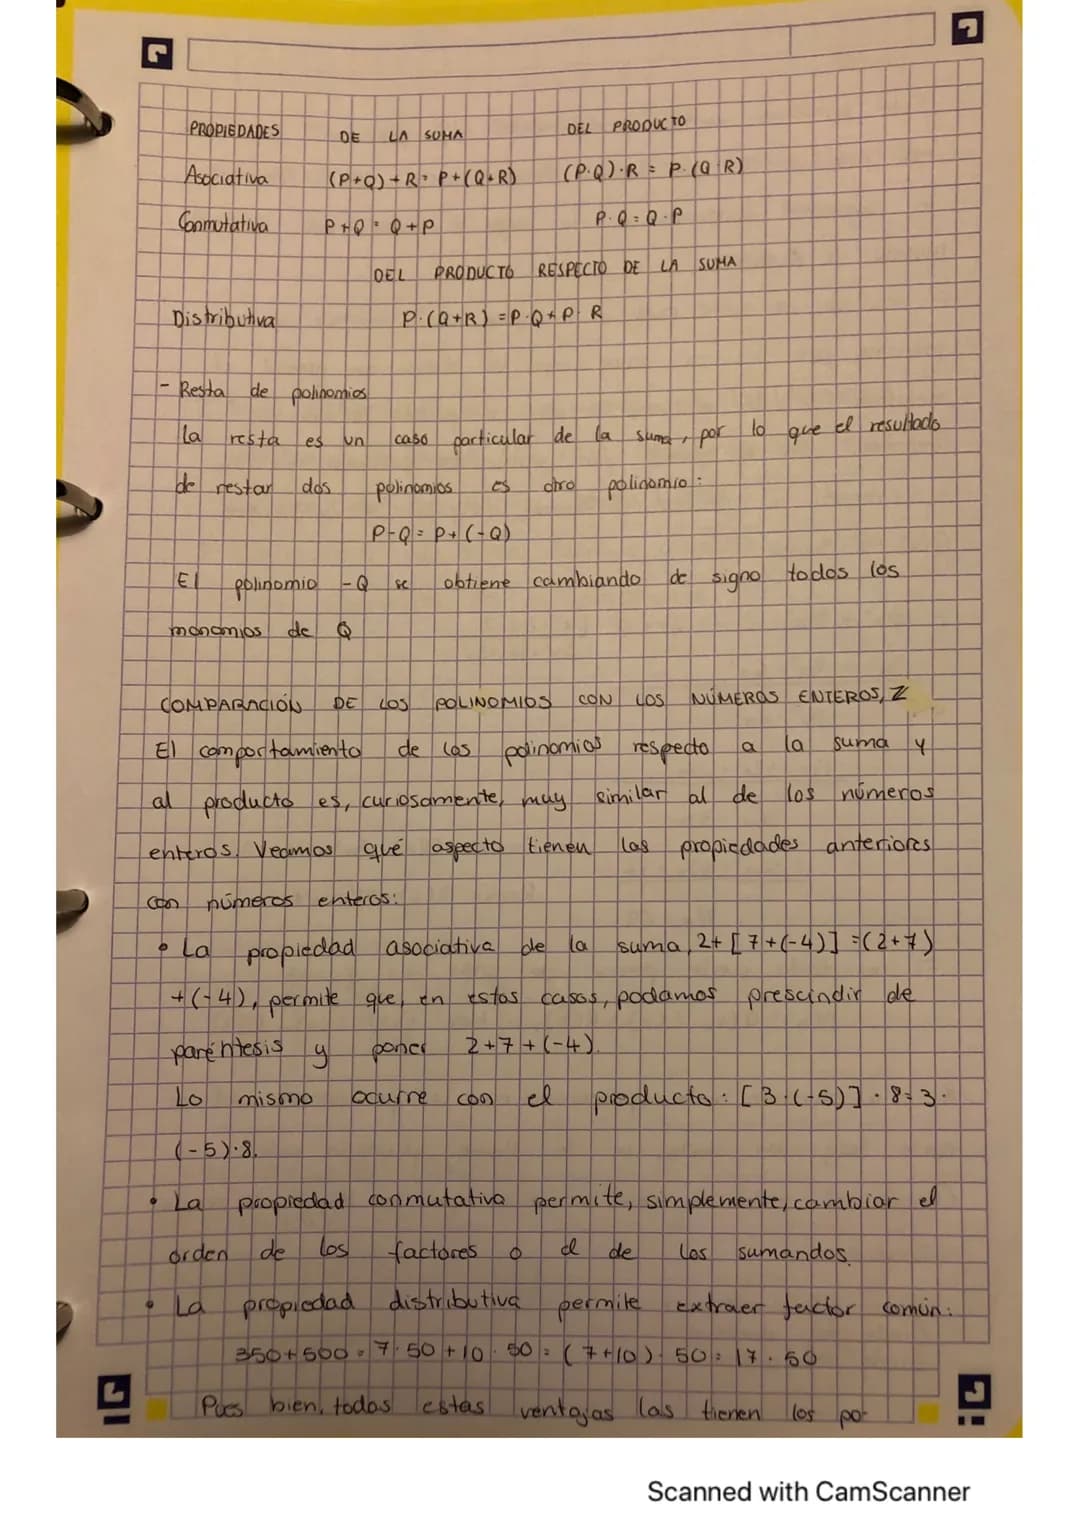 PROPIEDADES DE LA SUMA DEL PRODUCTO
Asociativa (P+Q)+R = P+(Q+R) (P·Q)·R = P·(Q·R)
Conmutativa P+Q = Q+P P·Q = Q·P
DEL PRODUCTO RESPECTO DE LA SUMA
Distributiva P·(Q+R) = P·Q+P·R
- Resta de polinomios
La resta es un caso particular de la suma, por lo que el resultado
de restar dos polinomios es otro polinomio:
P-Q = P+(-Q)
El polinomio -Q se obtiene cambiando de signo todos los
monomios de Q
COMPARACIÓN DE LOS POLINOMIOS CON LOS NÚMEROS ENTEROS, Z
El comportamiento de los polinomios respecto a la suma y
al producto es, curiosamente, muy similar al de los números
enteros. Veamos qué aspecto tienen las propiedades anteriores
con números enteros:
• La propiedad asociativa de la suma, 2+[7+(-4)] = (2+7)
+(-4), permite que, en estos casos, podamos prescindir de
paréntesis y poner 2+7+(-4).
Lo mismo ocurre con el producto: [3·(-5)]·8 = 3·
(-5)·8.
• La propiedad conmutativa permite, simplemente, cambiar el
orden de los factores o el de los sumandos.
• La propiedad distributiva permite extraer factor común:
350+500 = 7·50+10·50 = (7+10)·50 = 17·50
Pues bien, todas estas ventajas las tienen los po-
Scanned with CamScanner